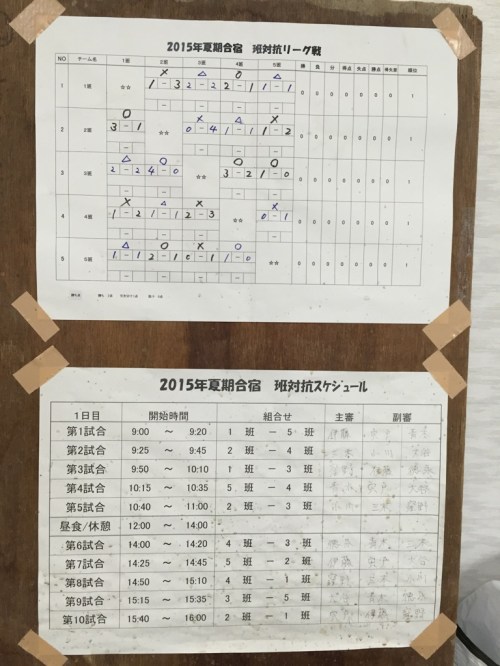 2015年夏期合宿 班対抗リーグ戦
NO チーム名 1班 2班 3班 4班 5班 勝 負 分 得点 失点 勝点 得失差 順位
× △ ○ △
1 1班 ☆☆ 1 - 3 2 - 2 2 - 1 1 - 1 0 0 0 0 0 0 0 1
○ × △ ×
2 2班 3 - 1 ☆☆ 0 - 4 1 - 1 1 - 2 0 0 0 0 0 0 0 1
△ ○ ○ ○
3 3班 2 - 2 4 - 0 ☆☆ 3 - 2 1 - 0 0 0 0 0 0 0 0 1
× △ × ×
4 4班 1 - 2 1 - 1 2 - 3 ☆☆ 0 - 1 0 0 0 0 0 0 0 1
△ ○ × ○
5 5班 1 - 1 2 - 1 0 - 1 1 - 0 ☆☆ 0 0 0 0 0 0 0 1
2015年夏期合宿 班対抗スケジュール
1日目 開始時間 組合せ 主審 副審
第1試合 9:00 ～ 9:20 1 班 － 5 班 伊藤
第2試合 9:25 ～ 9:45 2 班 － 4 班
第3試合 9:50 ～ 10:10 1 班 － 3 班
第4試合 10:15 ～ 10:35 5 班 － 4 班
第5試合 10:40 ～ 11:00 2 班 － 3 班
昼食/休憩 12:00 ～ 14:00
第6試合 14:00 ～ 14:20 4 班 － 3 班
第7試合 14:25 ～ 14:45 5 班 － 2 班 伊藤
第8試合 14:50 ～ 15:10 4 班 － 1 班
第9試合 15:15 ～ 15:35 3 班 － 5 班
第10試合 15:40 ～ 16:00 2 班 － 1 班